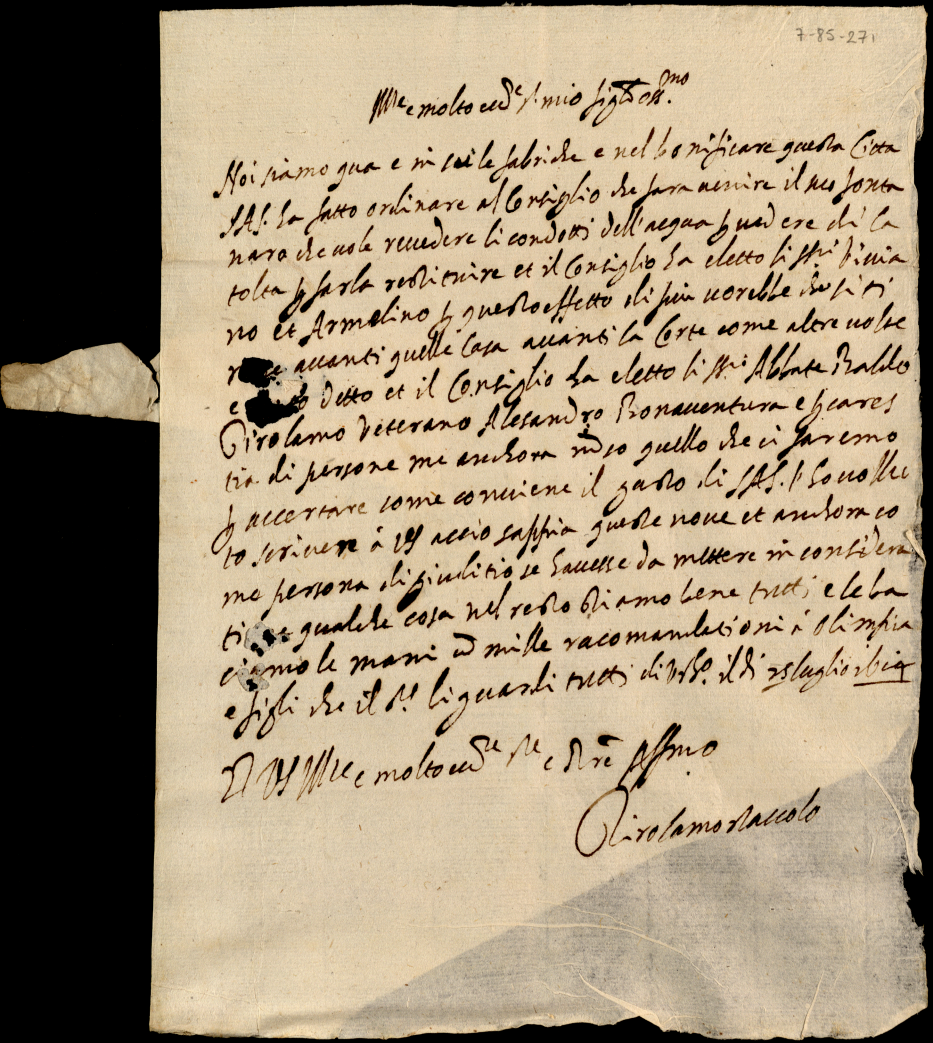 7-85-271
Ill.re e molto ecc.e s.r mio sig.re oss.mo
Noi siamo qua e in su le fabriche e nel bonificare questa Citta
SAS. ha fatto ordinare al Consiglio che fara venire il suo fonta
naro che vole revedere li condotti dell'acqua p vedere chi la
tolta p farla restituire et il Consiglio ha eletto li ss.ri Vivia
no et Armelino p questo effetto di piu vorebbe che si ti
avanti quelle Casa avanti la Corte come altre volte
e detto et il Consiglio ha eletto li ss.ri Abbate Baldo
Girolamo Veterano Alesandro Bonaventura e p cares
tia di persone me anchora quello che ci faremo
p accertare come conviene il gusto di SAS. Ho voluto
to scrivere á VS accio sappia queste nove et anchora co
me persona di giuditio se havesse da mettere in considera
tione qualche cosa nel resto stiamo bene tutti e le ba
ciamo le mani mille racomandationi á Olimpia
e figli che il S.r li guardi tutti di Urb.o il di 25 luglio
Di VS Ill.re e molto ecc.e S.re Aff.mo
Girolamo Staccolo